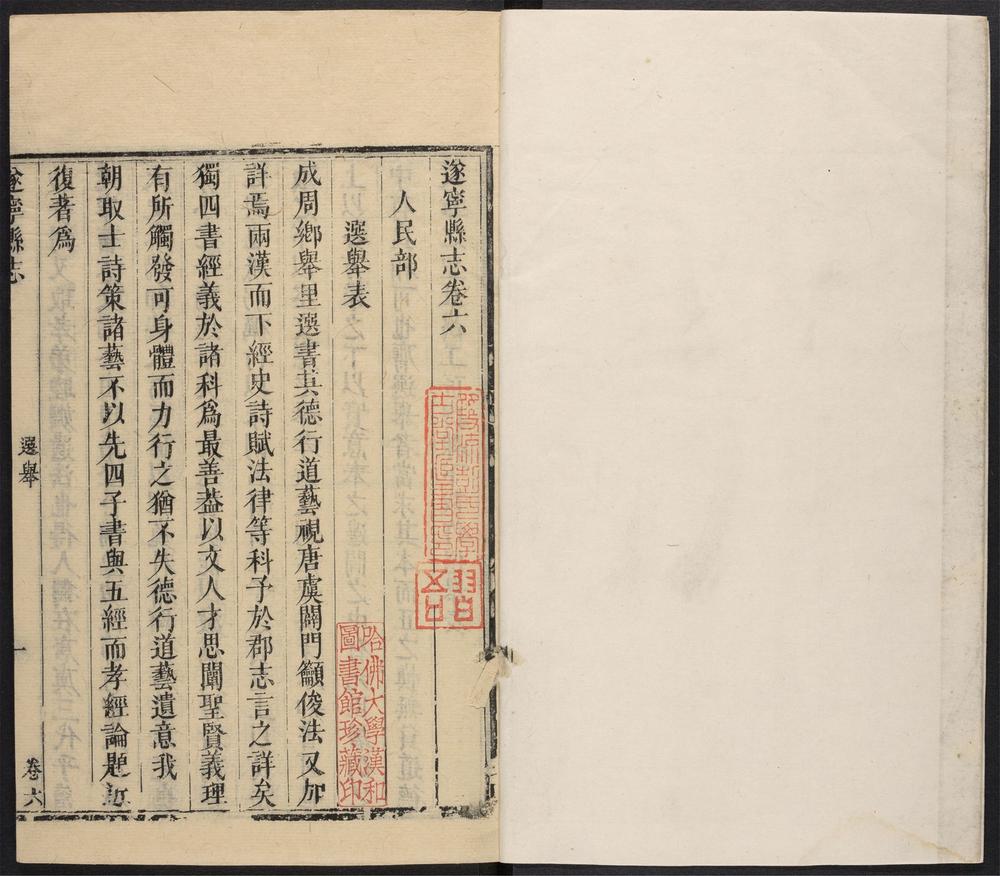 遂寧縣志卷六
人民部
選舉表
成周鄉舉里選書其德行道藝視唐虞闢門籲俊法又加
詳焉兩漢而下經史詩賦法律等科予於郡志言之詳矣
獨四書經義於諸科爲最善葢以文人才思闡聖賢義理
有所觸發可身體而力行之猶不失德行道藝遺意我
朝取士詩策諸藝不以先四子書與五經而孝經論題近
復著爲
遂寧縣志
選舉
一
卷六
哈佛大學漢和
圖書館珍藏印